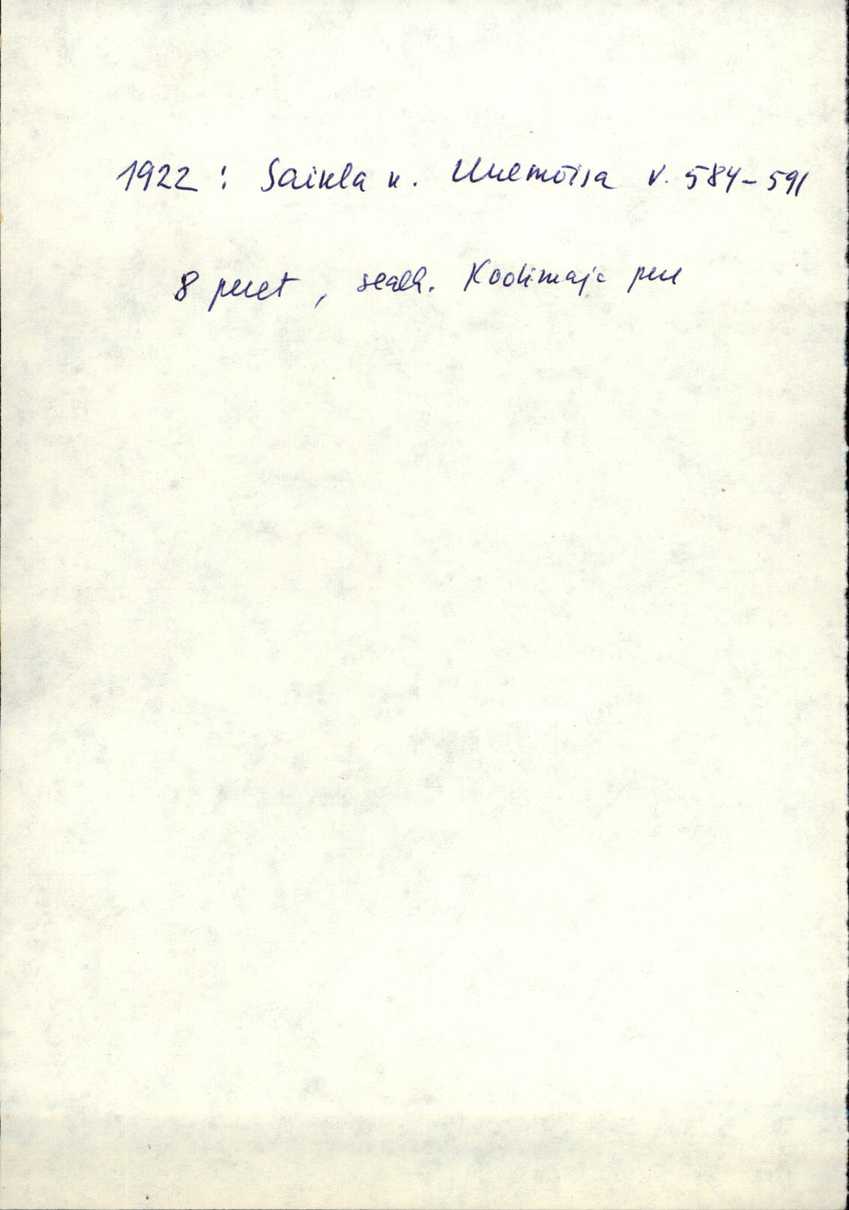 1922 : Sainla k. Uuemõisa v. 584-591
8 peret, sealh. Koolimaja pere